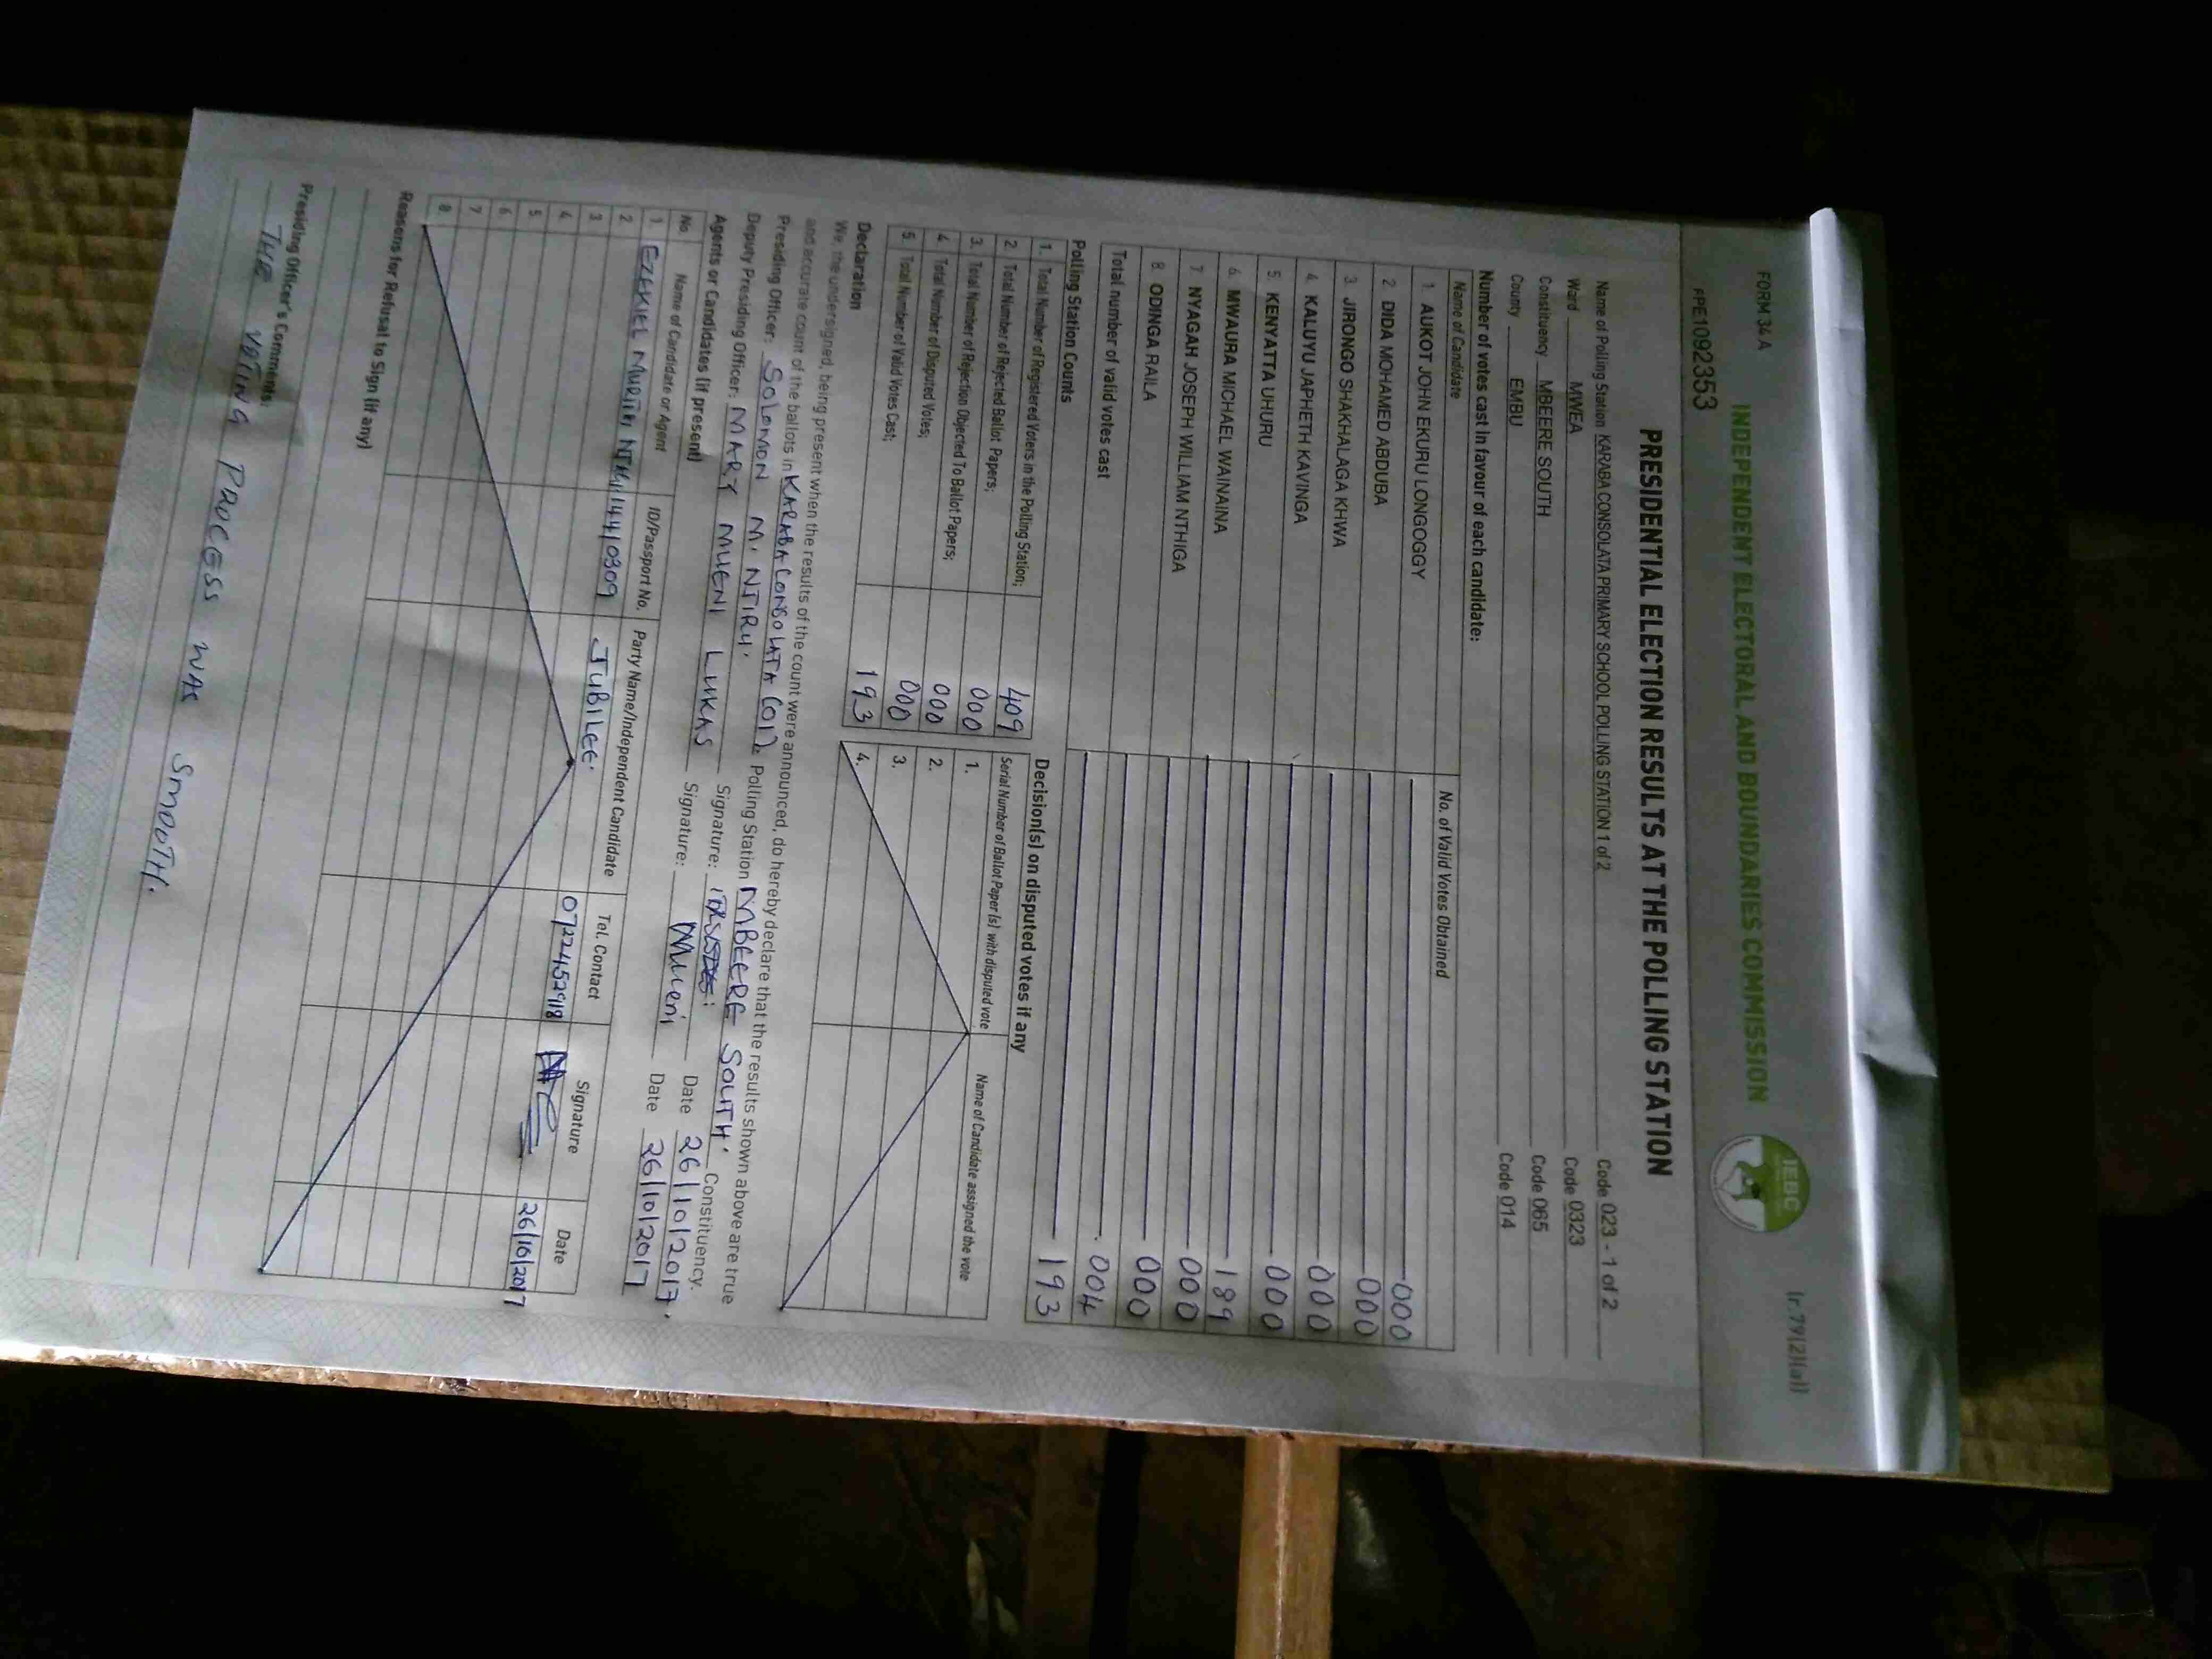 FORM 34A
(r.79(2)(a))
INDEPENDENT ELECTORAL AND BOUNDARIES COMMISSION
IEBC
PE1092353
PRESIDENTIAL ELECTION RESULTS AT THE POLLING STATION
Name of Polling Station KARABA CONSOLATA PRIMARY SCHOOL POLLING STATION 1 of 2 Code 023 - 1 of 2
Ward MWEA Code 0323
Constituency MBEERE SOUTH Code 065
County EMBU Code 014
Number of votes cast in favour of each candidate:
Name of Candidate No. of Valid Votes Obtained
1. AUKOT JOHN EKURU LONGOGGY 000
2. DIDA MOHAMED ABDUBA 000
3. JIRONGO SHAKHALAGA KHWA 000
4. KALUYU JAPHETH KAVINGA 000
5. KENYATTA UHURU 189
6. MWAURA MICHAEL WAINAINA 000
7. NYAGAH JOSEPH WILLIAM NTHIGA 000
8. ODINGA RAILA 004
Total number of valid votes cast 193
Polling Station Counts
1. Total Number of Registered Voters in the Polling Station; 409
2. Total Number of Rejected Ballot Papers; 000
3. Total Number of Rejection Objected To Ballot Papers; 000
4. Total Number of Disputed Votes; 000
5. Total Number of Valid Votes Cast; 193
Decision(s) on disputed votes if any
Serial Number of Ballot Paper (s) with disputed vote Name of Candidate assigned the vote
1.
2.
3.
4.
Declaration
We, the undersigned, being present when the results of the count were announced, do hereby declare that the results shown above are true
and accurate count of the ballots in KARABA CONSOLATA (01). Polling Station MBEERE SOUTH. Constituency.
Presiding Officer: SOLOMON M. NTIRU. Signature: Date 26/10/2017.
Deputy Presiding Officer: MARY MUENI LUKAS Signature: Mueni Date 26/10/2017
Agents or Candidates (if present)
No. Name of Candidate or Agent ID/Passport No. Party Name/Independent Candidate Tel. Contact Signature Date
1. EZAKIEL MURIITHI 0309 JUBILEE. 0722452918 26/10/2017
2.
3.
4.
5.
6.
7.
8.
Reasons for Refusal to Sign (if any)
Presiding Officer's Comments:
THE VOTING PROCESS WAS SMOOTH.